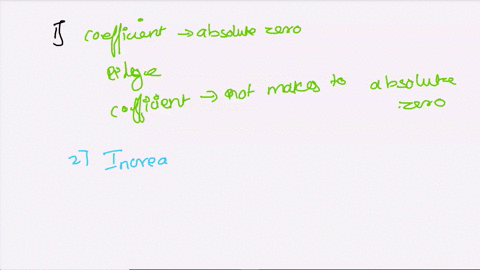 1] coefficient → absolute zero
Ridge
coefficient → not makes to absolute zero
2] Increa